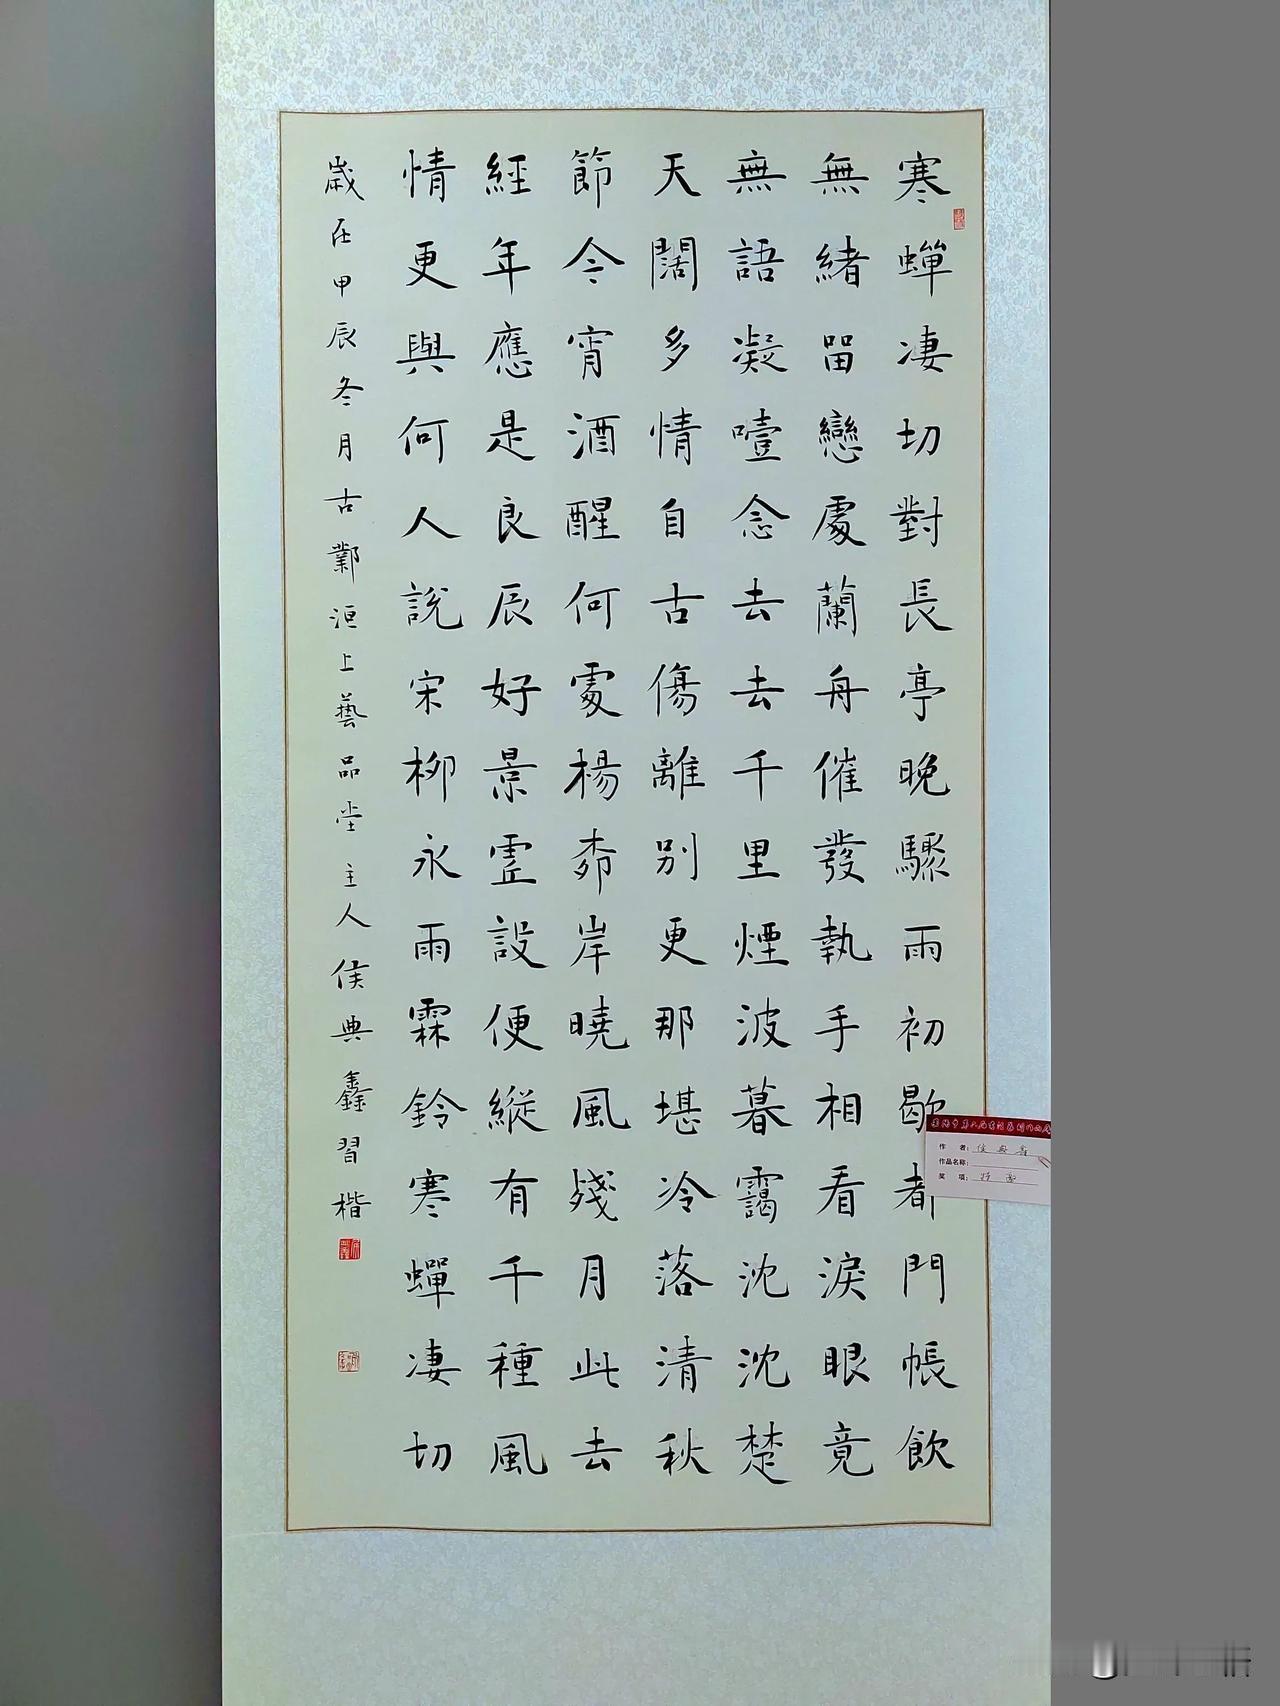 寒蟬凄切對長亭晚驟雨初歇都門帳飲
無緒畱戀處蘭舟催發執手相看淚眼竟
無語凝噎念去去千里煙波暮靄沈沈楚
天闊多情自古傷離別更那堪冷落清秋
節今宵酒醒何處楊桺岸曉風殘月此去
經年應是良辰好景虛設便縱有千種風
情更與何人說宋柳永雨霖鈴寒蟬凄切
歲在甲辰冬月古鄴洹上藝品堂主人侯典鑫習楷
作 者：侯典鑫
作品名称：
奖 项：